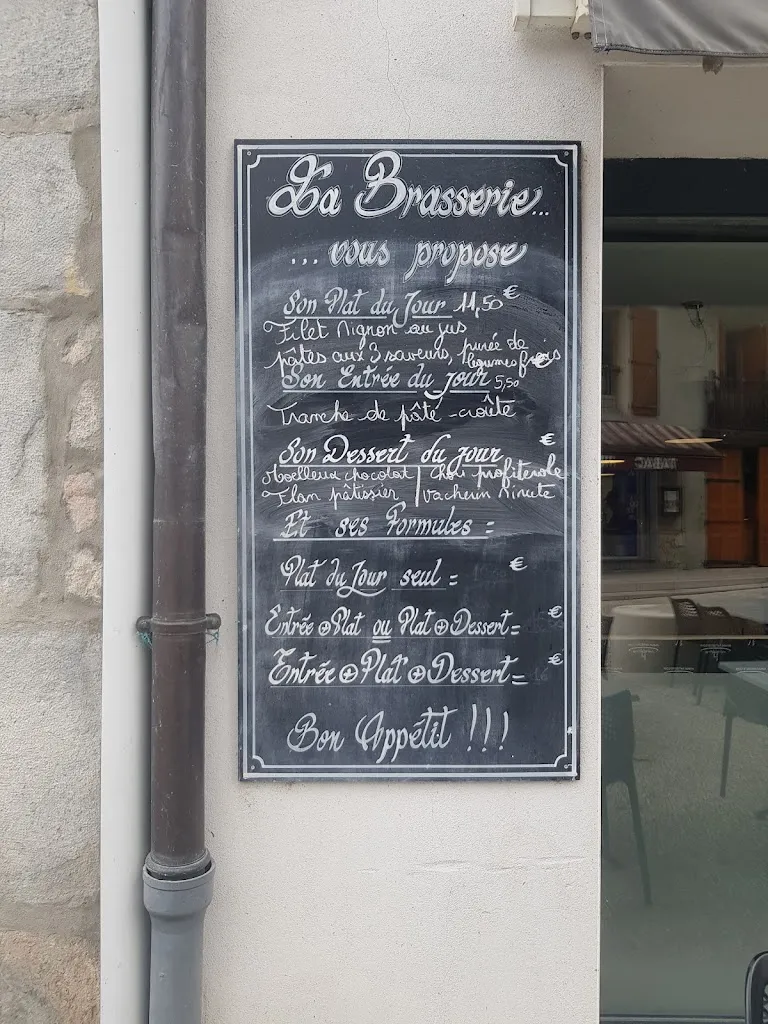 La Brasserie...
... vous propose
Son Plat du Jour 11,50 €
Filet Mignon au jus
pâtes aux 3 saveurs, purée de
legumes frais €
Son Entrée du jour 5,50
Tranche de pâté-croûte
Son Dessert du jour €
Moelleux chocolat | Chou profiterole
Flan pâtissier | Vacherin Minute
Et ses Formules =
Plat du Jour seul = €
Entrée + Plat ou Plat + Dessert = €
Entrée + Plat + Dessert = €
Bon Appétit !!!